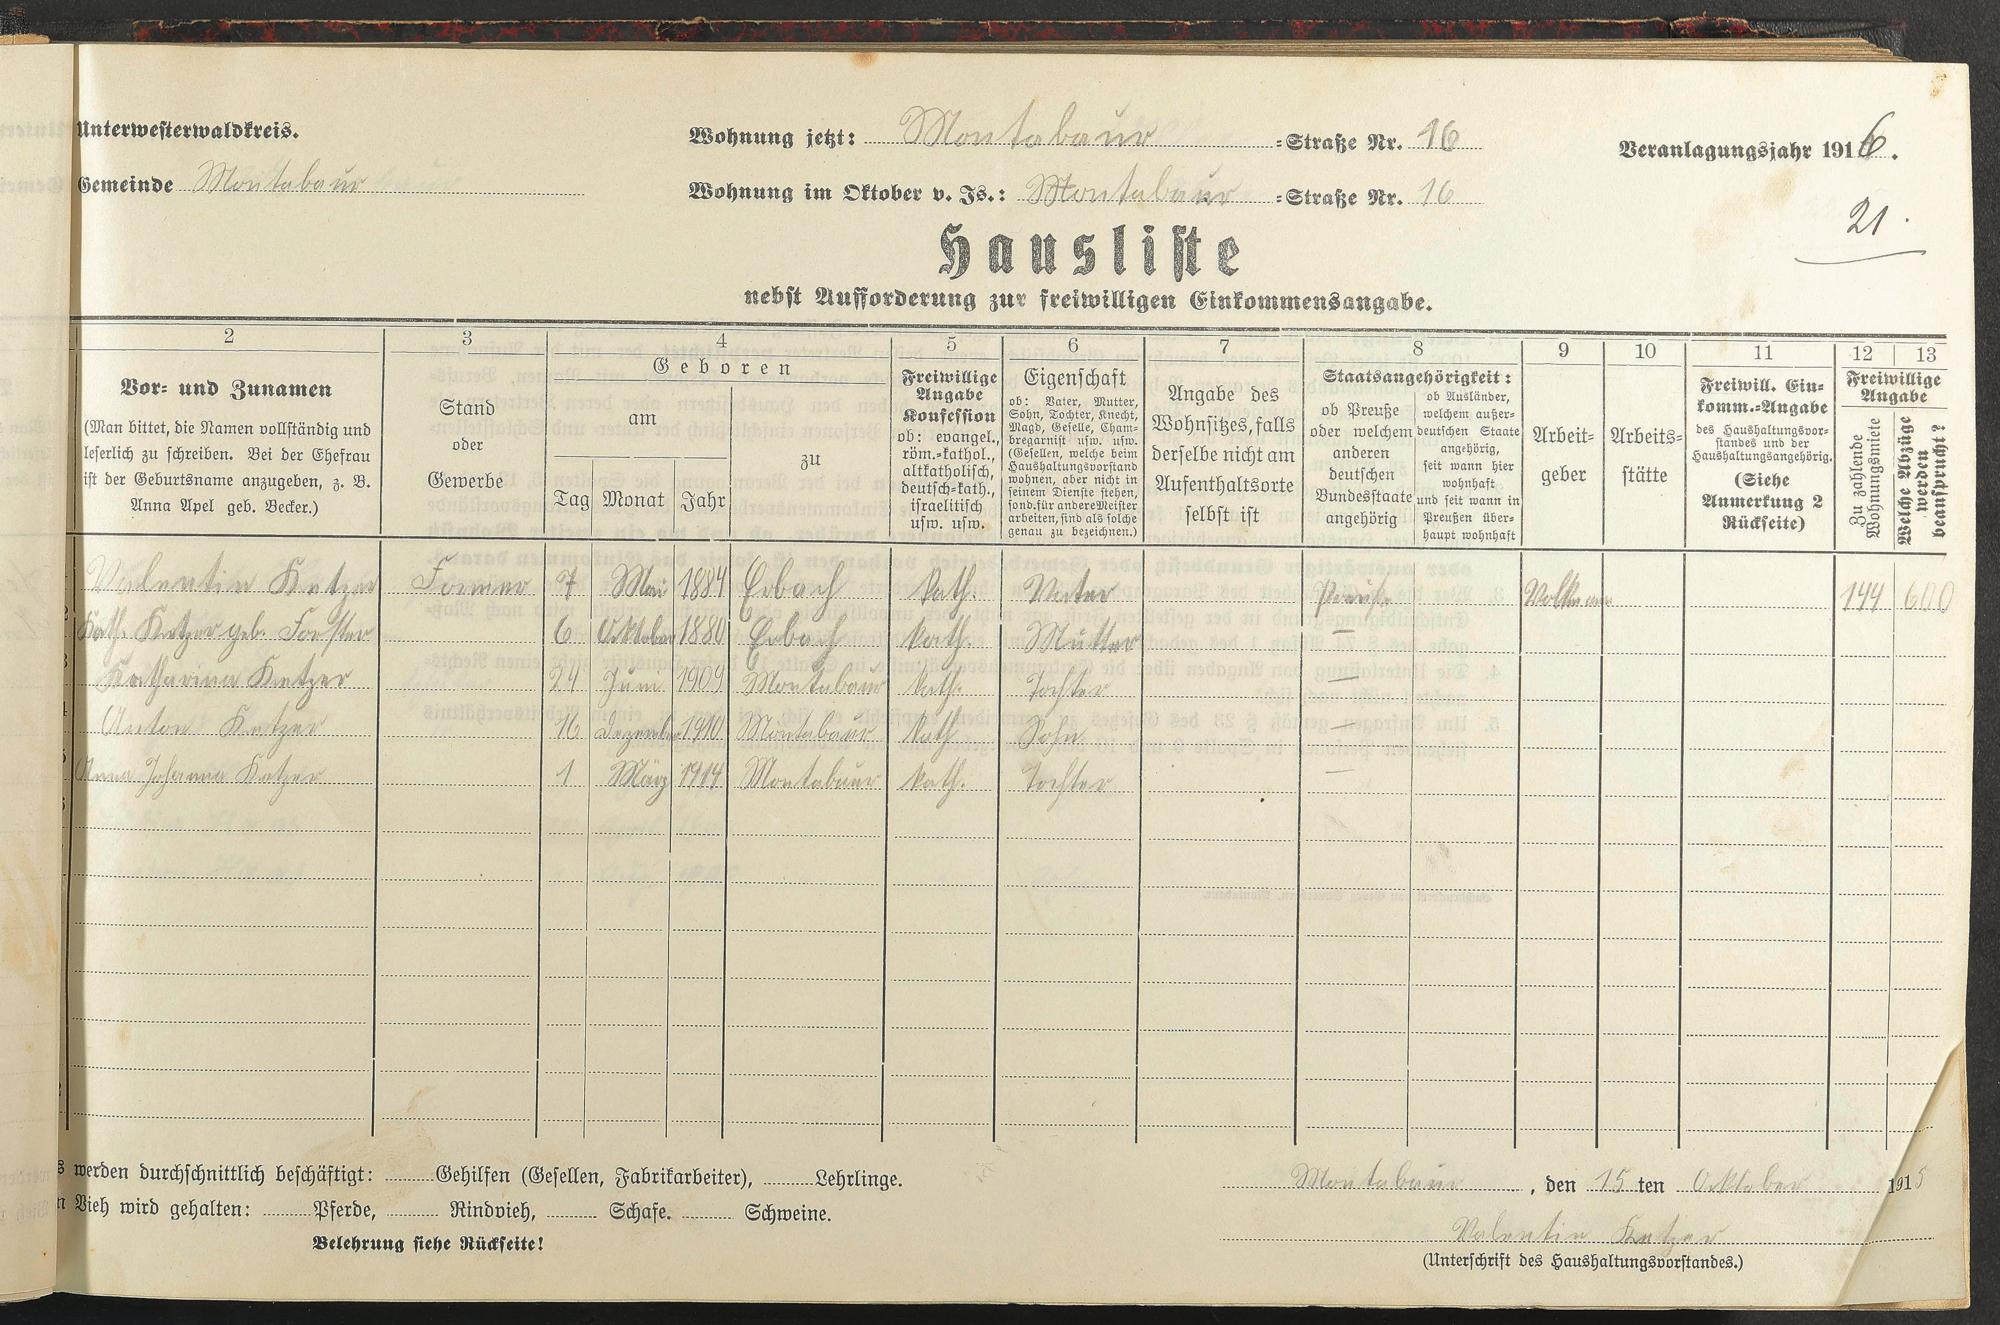 Unterwesterwaldkreis.
Gemeinde Montabaur
Wohnung jetzt: Montabaur =Straße Nr. 16
Wohnung im Oktober v. Js.: Montabaur =Straße Nr. 16
Veranlagungsjahr 1916.
21.
Hausliste
nebst Aufforderung zur freiwilligen Einkommensangabe.
2
Vor= und Zunamen
(Man bittet, die Namen vollständig und
leserlich zu schreiben. Bei der Ehefrau
ist der Geburtsname anzugeben, z. B.
Anna Apel geb. Becker.)
3
Stand
oder
Gewerbe
4
Geboren
am
Tag Monat Jahr
zu
5
Freiwillige
Angabe
Konfession
ob: evangel.,
röm.=kathol.,
altkatholisch,
deutsch=kath.,
israelitisch
usw. usw.
6
Eigenschaft
ob: Vater, Mutter,
Sohn, Tochter, Knecht,
Magd, Geselle, Cham=
bregarnist usw. usw.
(Gesellen, welche beim
Haushaltungsvorstand
wohnen, aber nicht in
seinem Dienste stehen,
sond. für andere Meister
arbeiten, sind als solche
genau zu bezeichnen.)
7
Angabe des
Wohnsitzes, falls
derselbe nicht am
Aufenthaltsorte
selbst ist
8
Staatsangehörigkeit:
ob Preuße
oder welchem
anderen
deutschen
Bundesstaate
angehörig
ob Ausländer,
welchem außer=
deutschen Staate
angehörig,
seit wann hier
wohnhaft
und seit wann in
Preußen über=
haupt wohnhaft
9
Arbeit=
geber
10
Arbeits=
stätte
11
Freiwill. Ein=
komm.=Angabe
des Haushaltungsvor=
standes und der
Haushaltungsangehörig.
(Siehe
Anmerkung 2
Rückseite)
12 13
Freiwillige
Angabe
Zu zahlende
Wohnungsmiete
Welche Abzüge
werden
beansprucht?
Valentin Katzer Former 7 Mai 1884 Erbach kath. Vater Preuße Volkmann 144 600
Kath. Katzer geb. Forster 6 Ocktober 1880 Erbach kath. Mutter —
Katharina Katzer 24 Juni 1909 Montabaur kath. Tochter —
Anton Katzer 16 Dezember 1910 Montabaur kath. Sohn —
Anna Johanna Katzer 1 März 1914 Montabaur kath. Tochter —
s werden durchschnittlich beschäftigt: Gehilfen (Gesellen, Fabrikarbeiter), Lehrlinge.
n Vieh wird gehalten: Pferde, Rindvieh, Schafe. Schweine.
Belehrung siehe Rückseite!
Montabaur, den 15ten Ocktober 1915
Valentin Katzer
(Unterschrift des Haushaltungsvorstandes.)